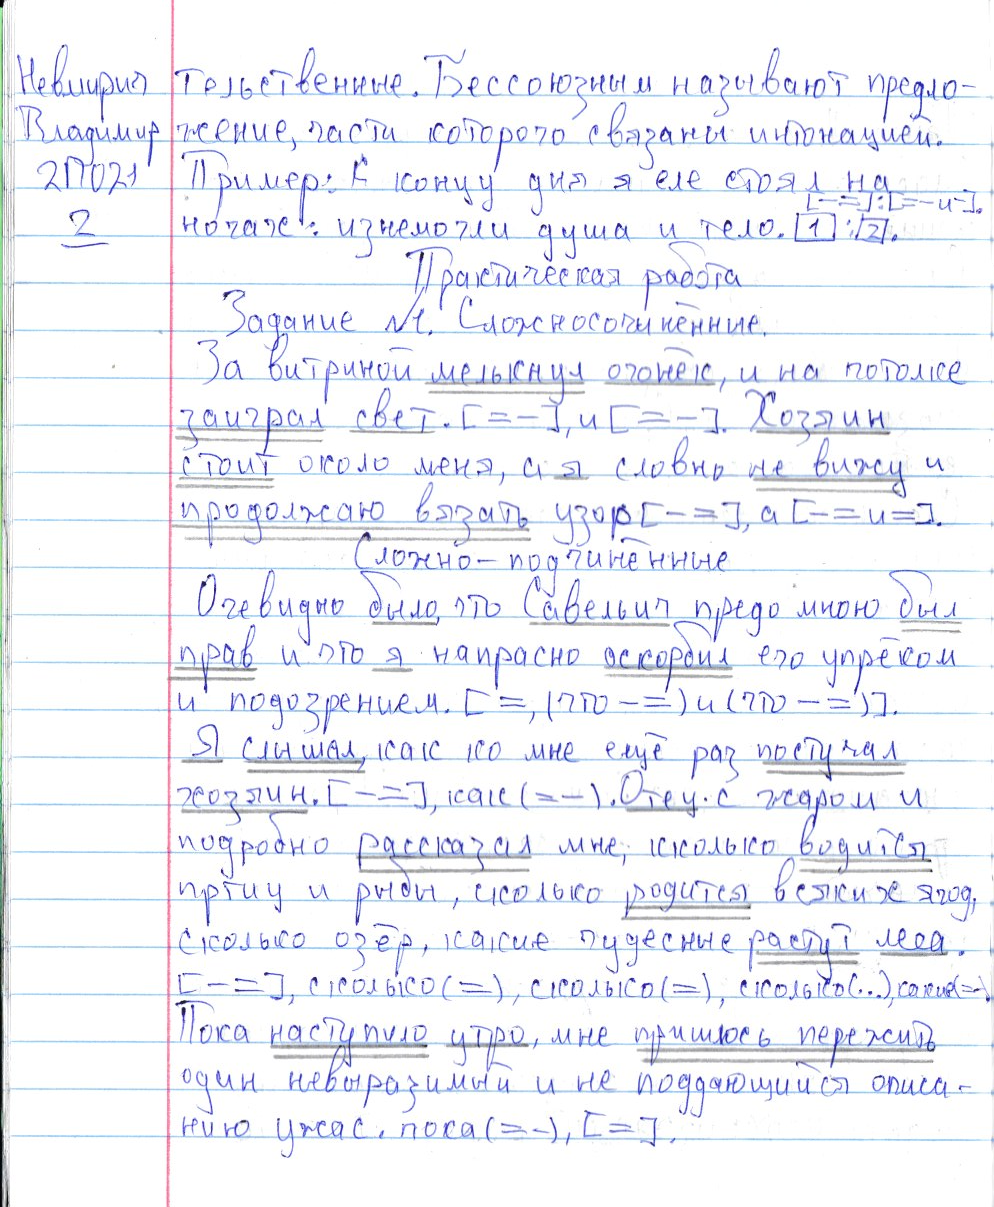 Невмирич
Владимир
2ПО21
2
тельственные. Бессоюзным называют предло-
жение, части которого связаны интонацией.
Пример: К концу дня я еле стоял на
[-=]:[=-и-].
ногах: изнемогли душа и тело. [1]:[2].
Практическая работа
Задание №1. Сложносочинённые.
За витриной мелькнул огонёк, и на потолке
заиграл свет. [=-], и [=-]. Хозяин
стоит около меня, а я словно не вижу и
продолжаю вязать узор [-=], а [-=и=].
Сложно-подчинённые
Очевидно было, что Савельич предо мною был
прав и что я напрасно оскорбил его упрёком
и подозрением. [=, (что -=) и (что -=)].
Я слышал, как ко мне ещё раз постучал
хозяин. [-=], как (=-). Отец с жаром и
подробно рассказал мне, сколько водится
птиц и рыбы, сколько родится всяких ягод,
сколько озёр, какие чудесные растут леса.
[-=], сколько (=), сколько (=), сколько (...), какие (=-)
Пока наступило утро, мне пришлось пережить
один невыразимый и не поддающийся описа-
нию ужас. пока (=-), [=].